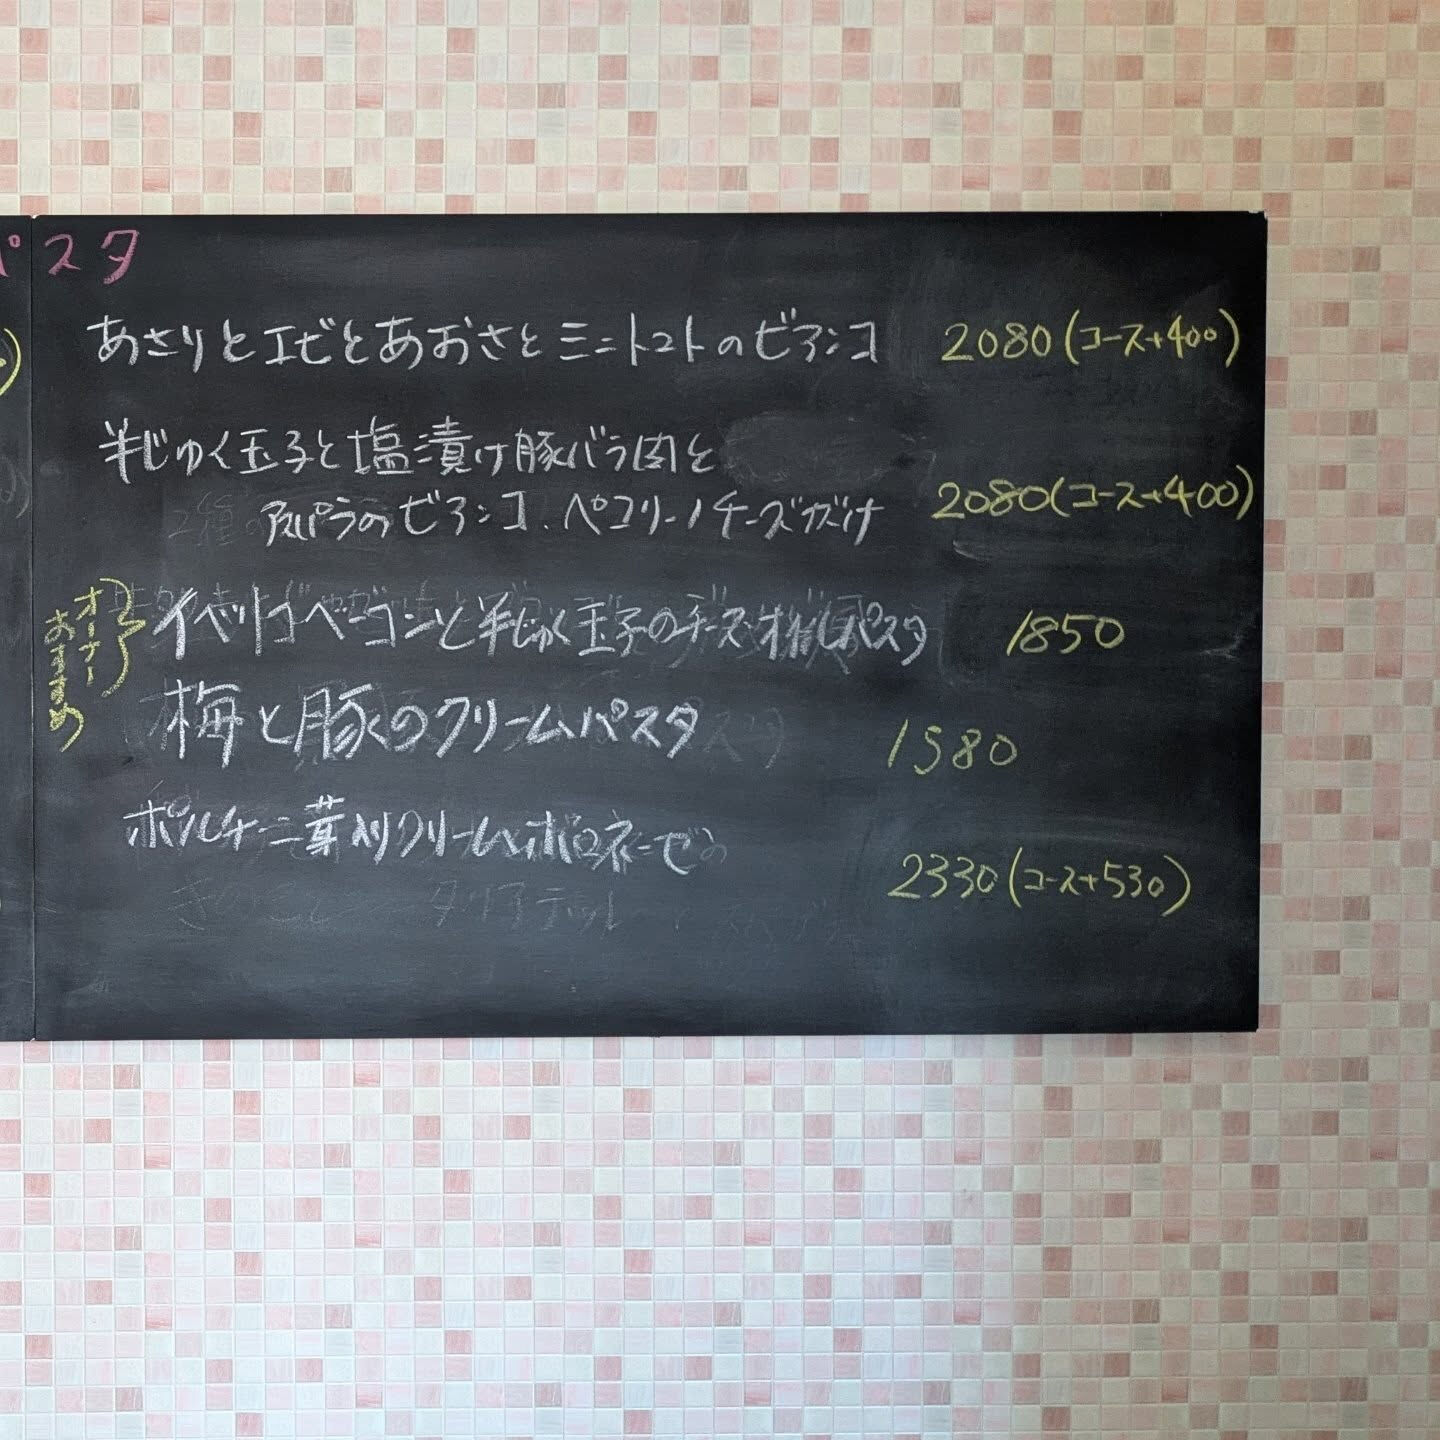 パスタ
あさりとエビとあおさとミニトマトのビアンコ 2080(コース+400)
半じゅく玉子と塩漬け豚バラ肉と
のビアンコ、ペコリーノチーズがけ 2080(コース+400)
オーナー
おすすめ
イベリコベーコンと半じゅく玉子のチーズ パスタ 1850
梅と豚のクリームパスタ 1580
ポルチーニ茸入りクリームボロネーゼ
2330(コース+530)